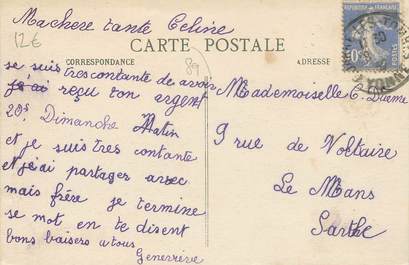 Machere tante Celine
12€
CARTE POSTALE
CORRESPONDANCE
ADRESSE
je suis tres contante de avoir
reçu ton argent
20s. Dimanche Matin
et je suis tres contante
et j'ai partager avec
mais frére je termine
se mot en te disent
bons baisers a tous
Generviève
Mademoiselle C.
9 rue de Voltaire
Le Mans
Sarthe